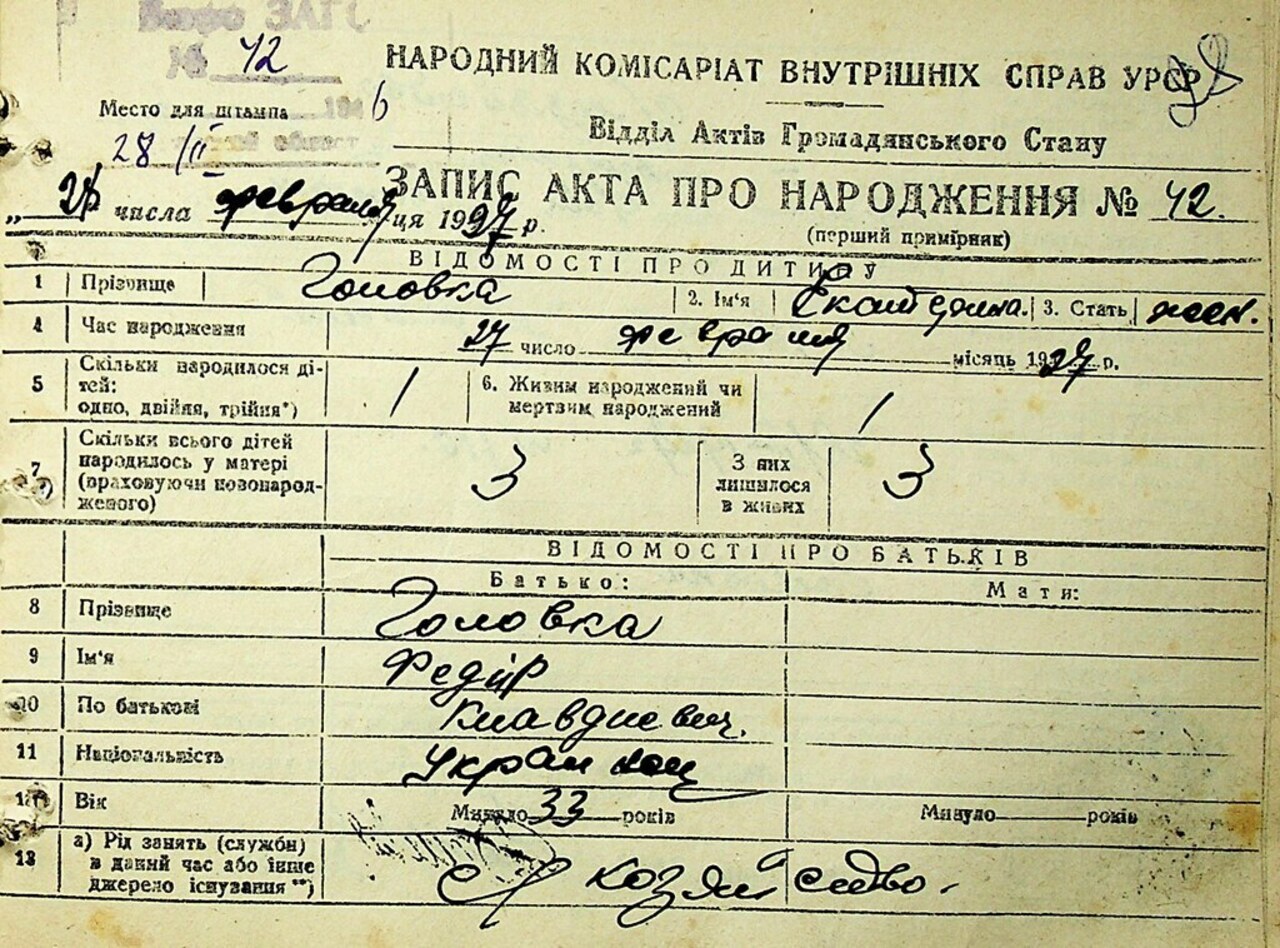 Бюро ЗАГС
№ 42
НАРОДНИЙ КОМІСАРІАТ ВНУТРІШНІХ СПРАВ УРСР
Место для штампа 194 6
28/II
Відділ Актів Громадянського Стану
ЗАПИС АКТА ПРО НАРОДЖЕННЯ № 42.
„ 28 числа февраля ця 1927 р.
(перший примірник)
ВІДОМОСТІ ПРО ДИТИНУ
1 Прізвище Головка 2. Ім'я Екатерина. 3. Стать жен.
4 Час народження 27 число февраля місяць 1927 р.
5 Скільки народилося ді-
тей:
одно, двійня, трійня*) / 6. Живим народжений чи
мертвим народжений /
7 Скільки всього дітей
народилось у матері
(враховуючи новонарод-
женого) 3 З них
лишилося
в живих 3
ВІДОМОСТІ ПРО БАТЬКІВ
Батько: Мати:
8 Прізвище Головка
9 Ім'я Федір
10 По батькові Клавдиевич.
11 Національність Украинец
12 Вік Минуло 33 років Минуло років
13 а) Рід занять (служби)
в даний час або інше
джерело існування **) с/козяйство.